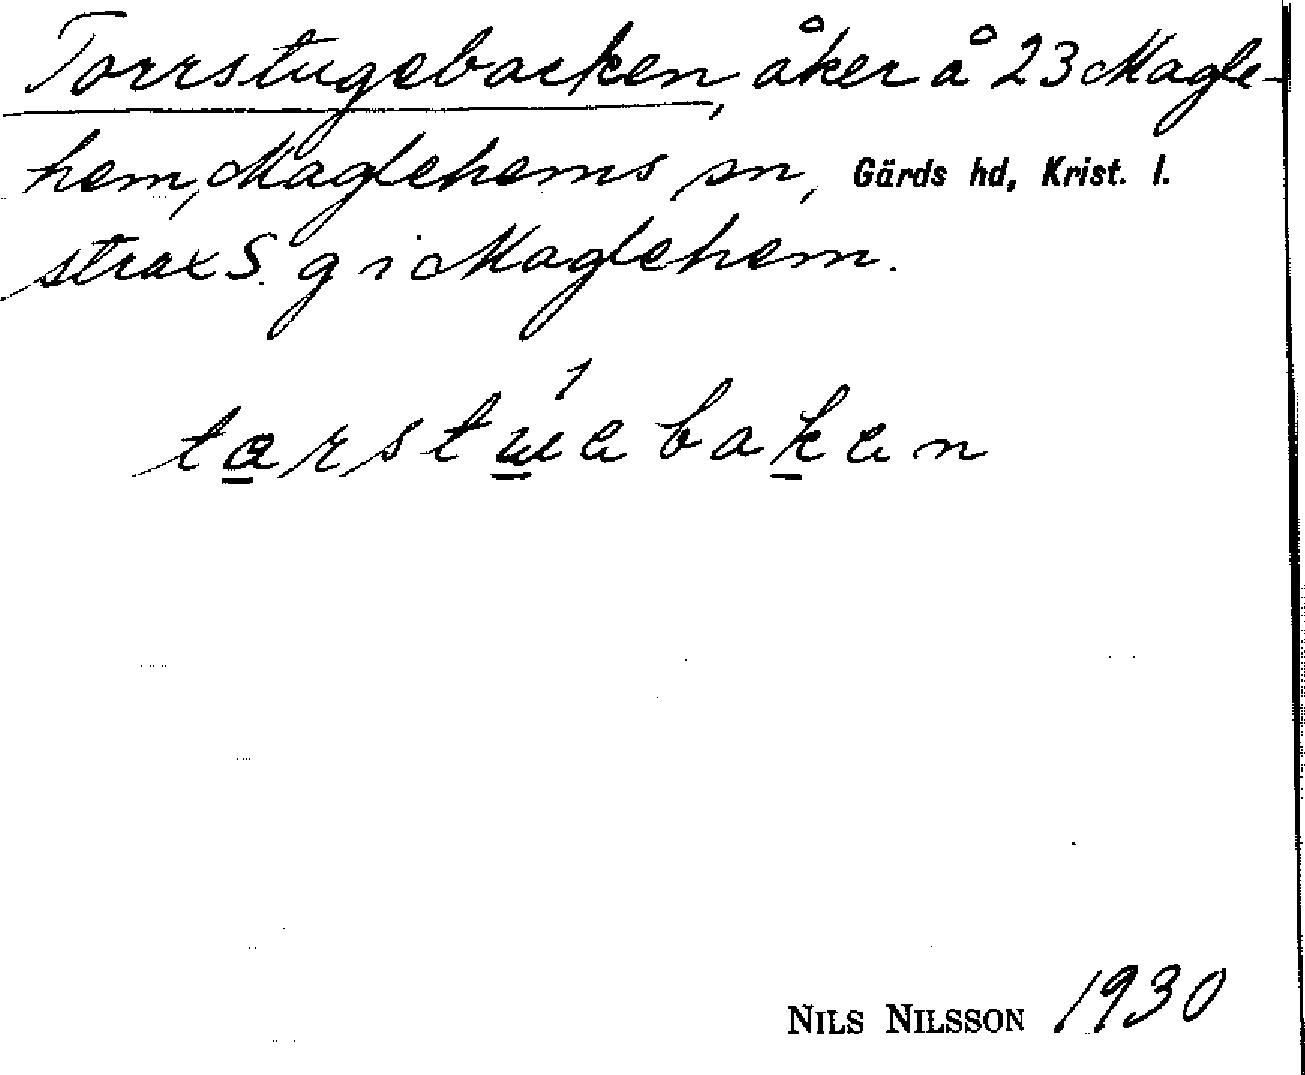 Torrstugebacken, åker å 23 Magle-
hem, Maglehems sn, Gärds hd, Krist. l.
strax S. g i Maglehem.
tarstúebaken
NILS NILSSON 1930